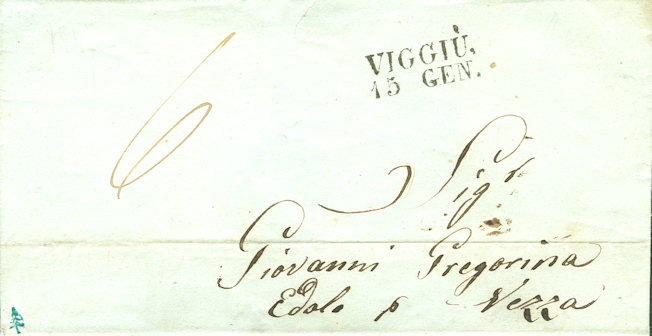 VIGGIÙ,
15 GEN.
6
Sig.r
Giovanni Gregorina
Edolo p Vezza